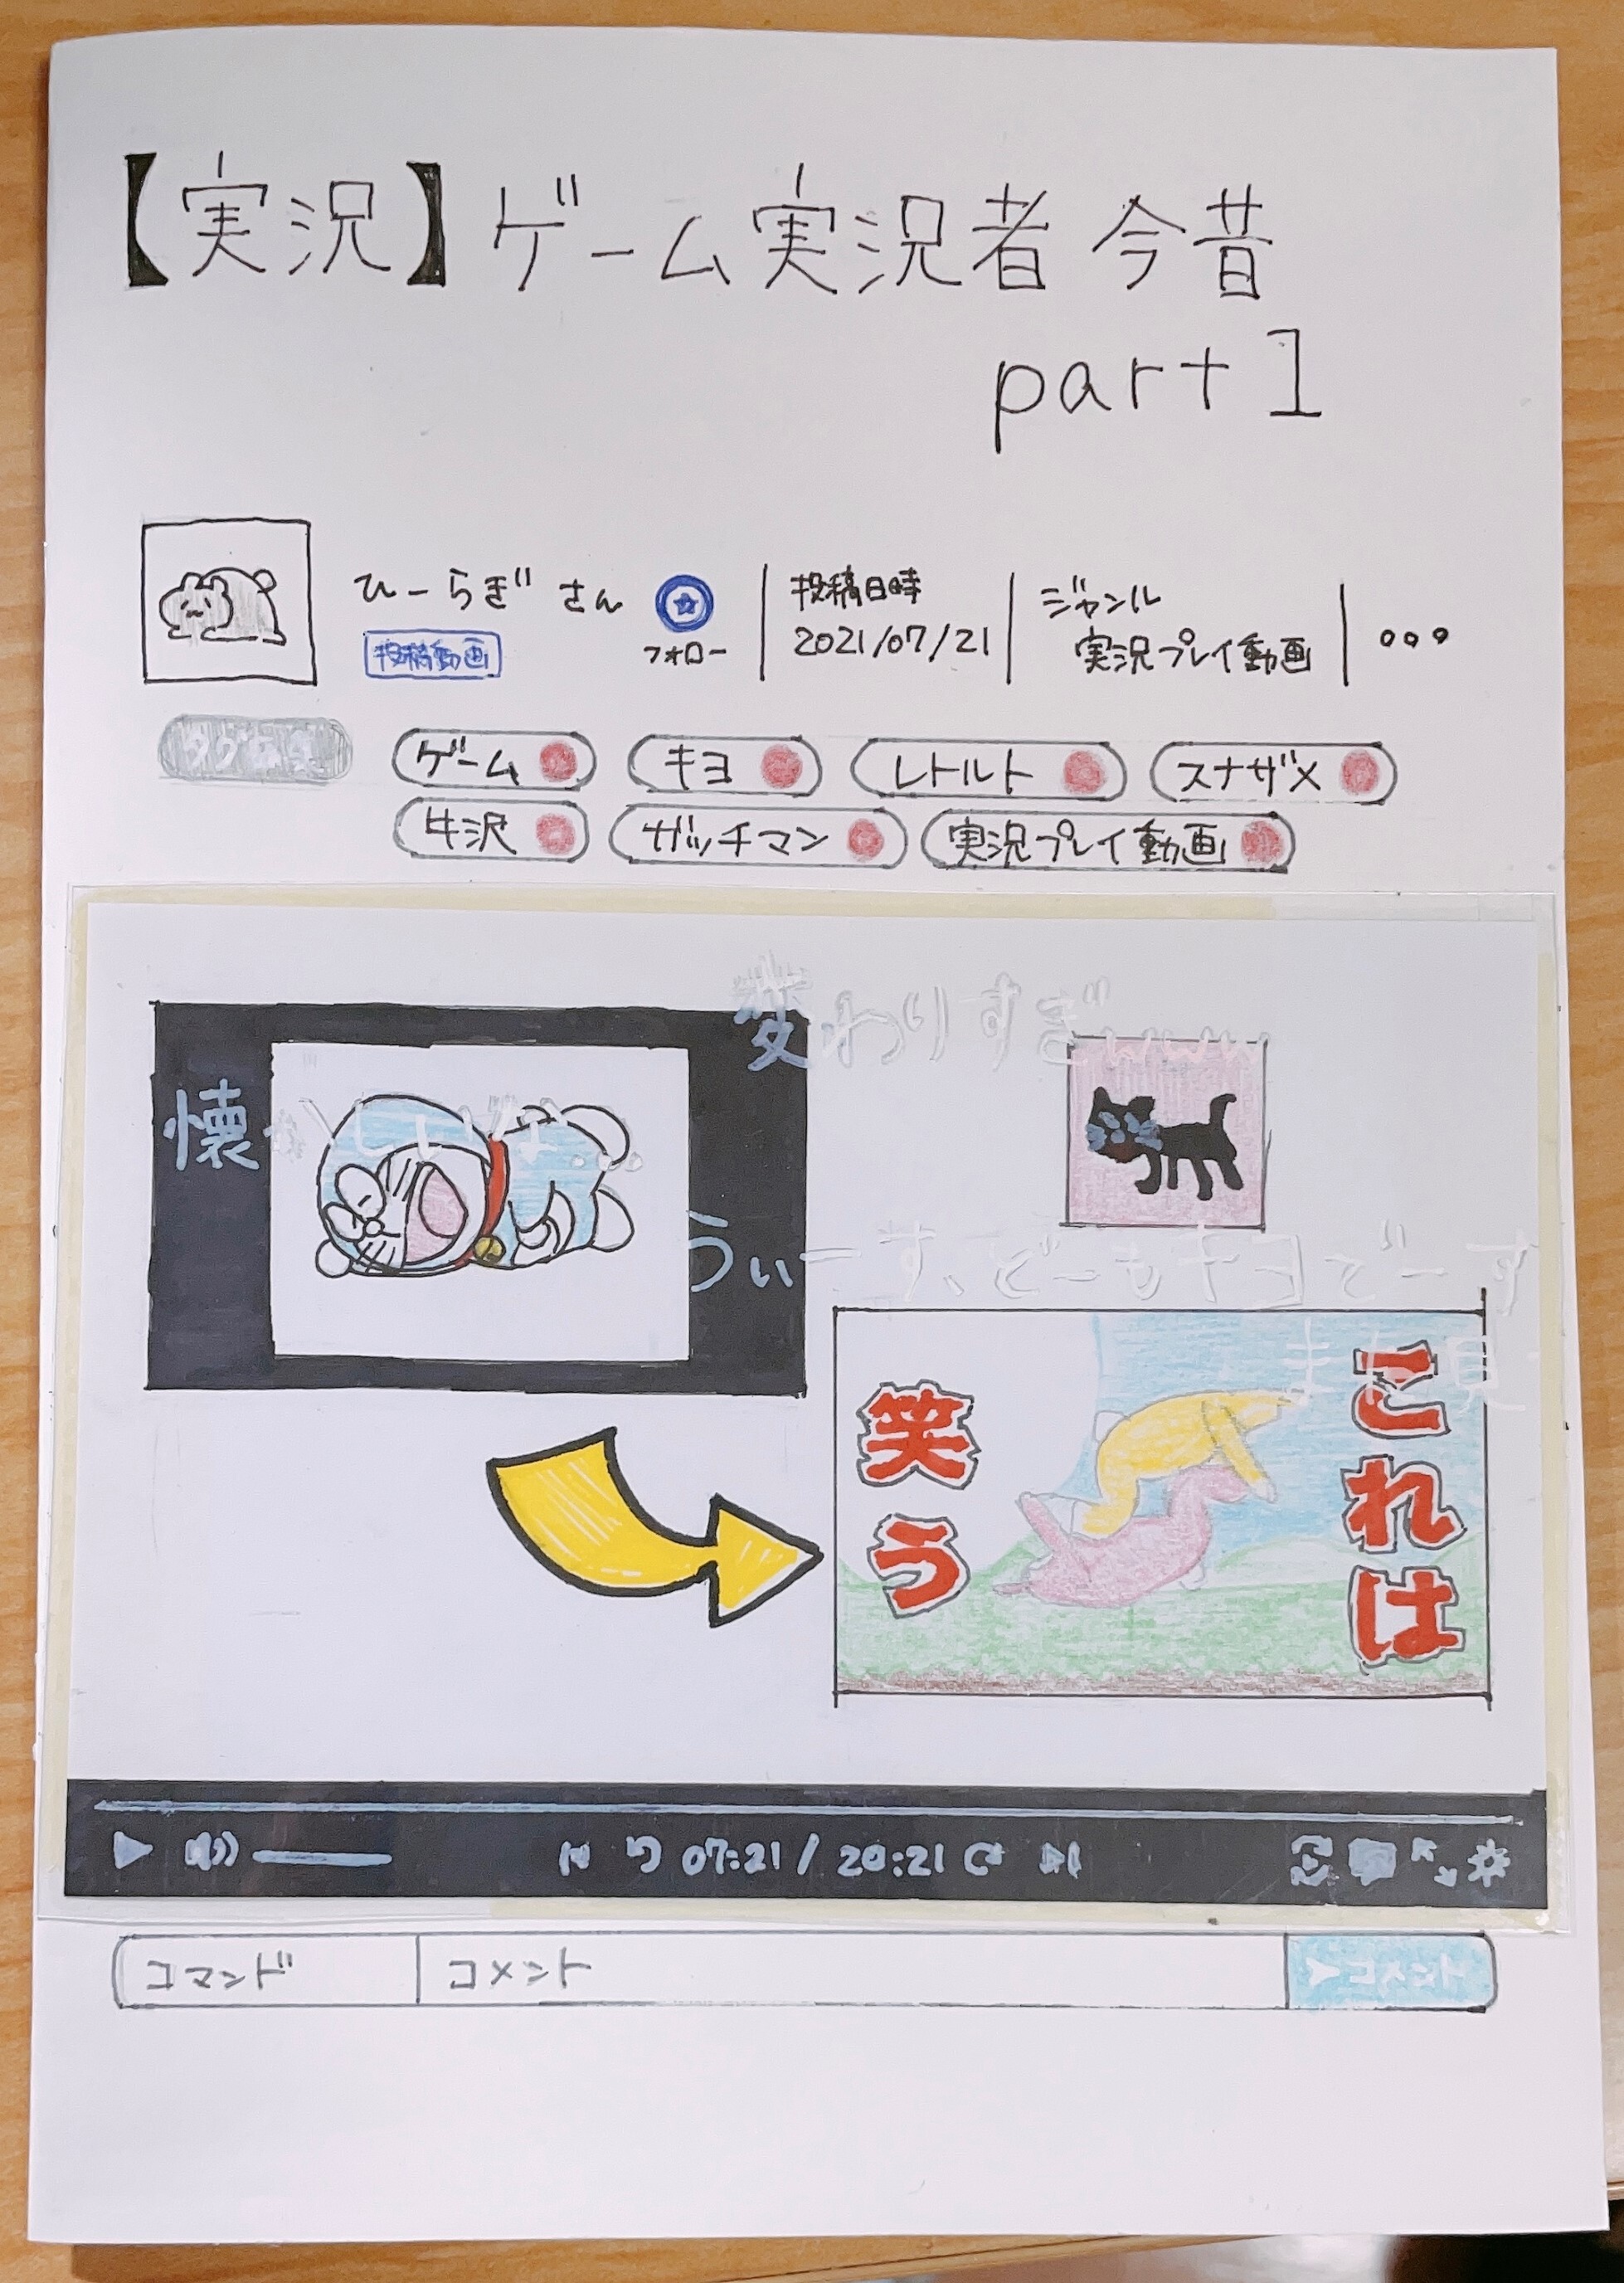 【実況】ゲーム実況者 今昔
part1
ひーらぎ さん
投稿動画
フォロー
投稿日時
2021/07/21
ジャンル
実況プレイ動画
ゲーム
キヨ
レトルト
スナザメ
牛沢
ガッチマン
実況プレイ動画
変わりすぎwww
懐かしいな...
うぃーす、どーもキヨでーす
これは
笑う
07:21 / 20:21
コマンド
コメント